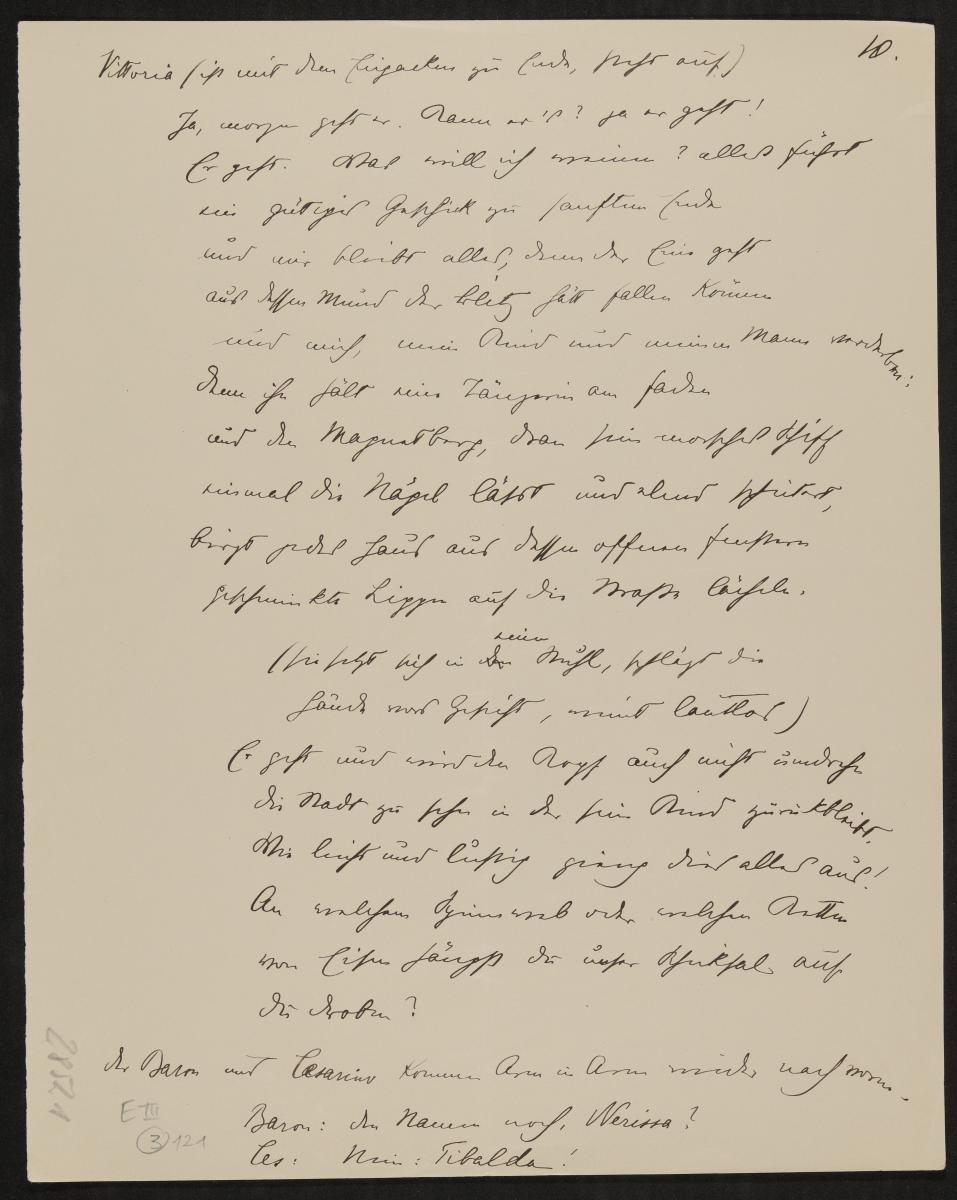 10.
Vittoria (ist mit dem Einpacken zu Ende, steht auf)
Ja, morgen geht er. Kann er's? ja er geht!
Er geht. Was will ich weinen? alles führt
ein gütiges Geschick zu sanftem Ende
und mir bleibt alles, denn der Eine geht
aus dessen Mund der Blitz hätt fallen können
und mich, mein Kind und meinen Mann verderben:
denn ihn hält eine Tänzerin am Faden
und den Magnetberg, dran sein morsches Schiff
einmal die Nägel läßt und elend scheitert,
birgt jedes Haus aus dessen offenen Fenstern
geschminkte Lippen auf die Straße lächeln.
(sie setzt sich in den seinen Stuhl, schlägt die
Hände vors Gesicht, weint lautlos)
Er geht und wird den Kopf auch nicht umdrehn
die Stadt zu sehn in der sein Kind zurückbleibt.
Wie leicht und lustig gieng dies alles aus!
An welchem Spinnweb oder welchen Ketten
von Eisen hängst du unser Schicksal auf
du droben?
der Baron und Cesarino kommen Arm in Arm wieder nach vorne.
Baron: den Namen noch, Nerissa?
Ces: Nein: Tibalda!
28521
E III
3 121